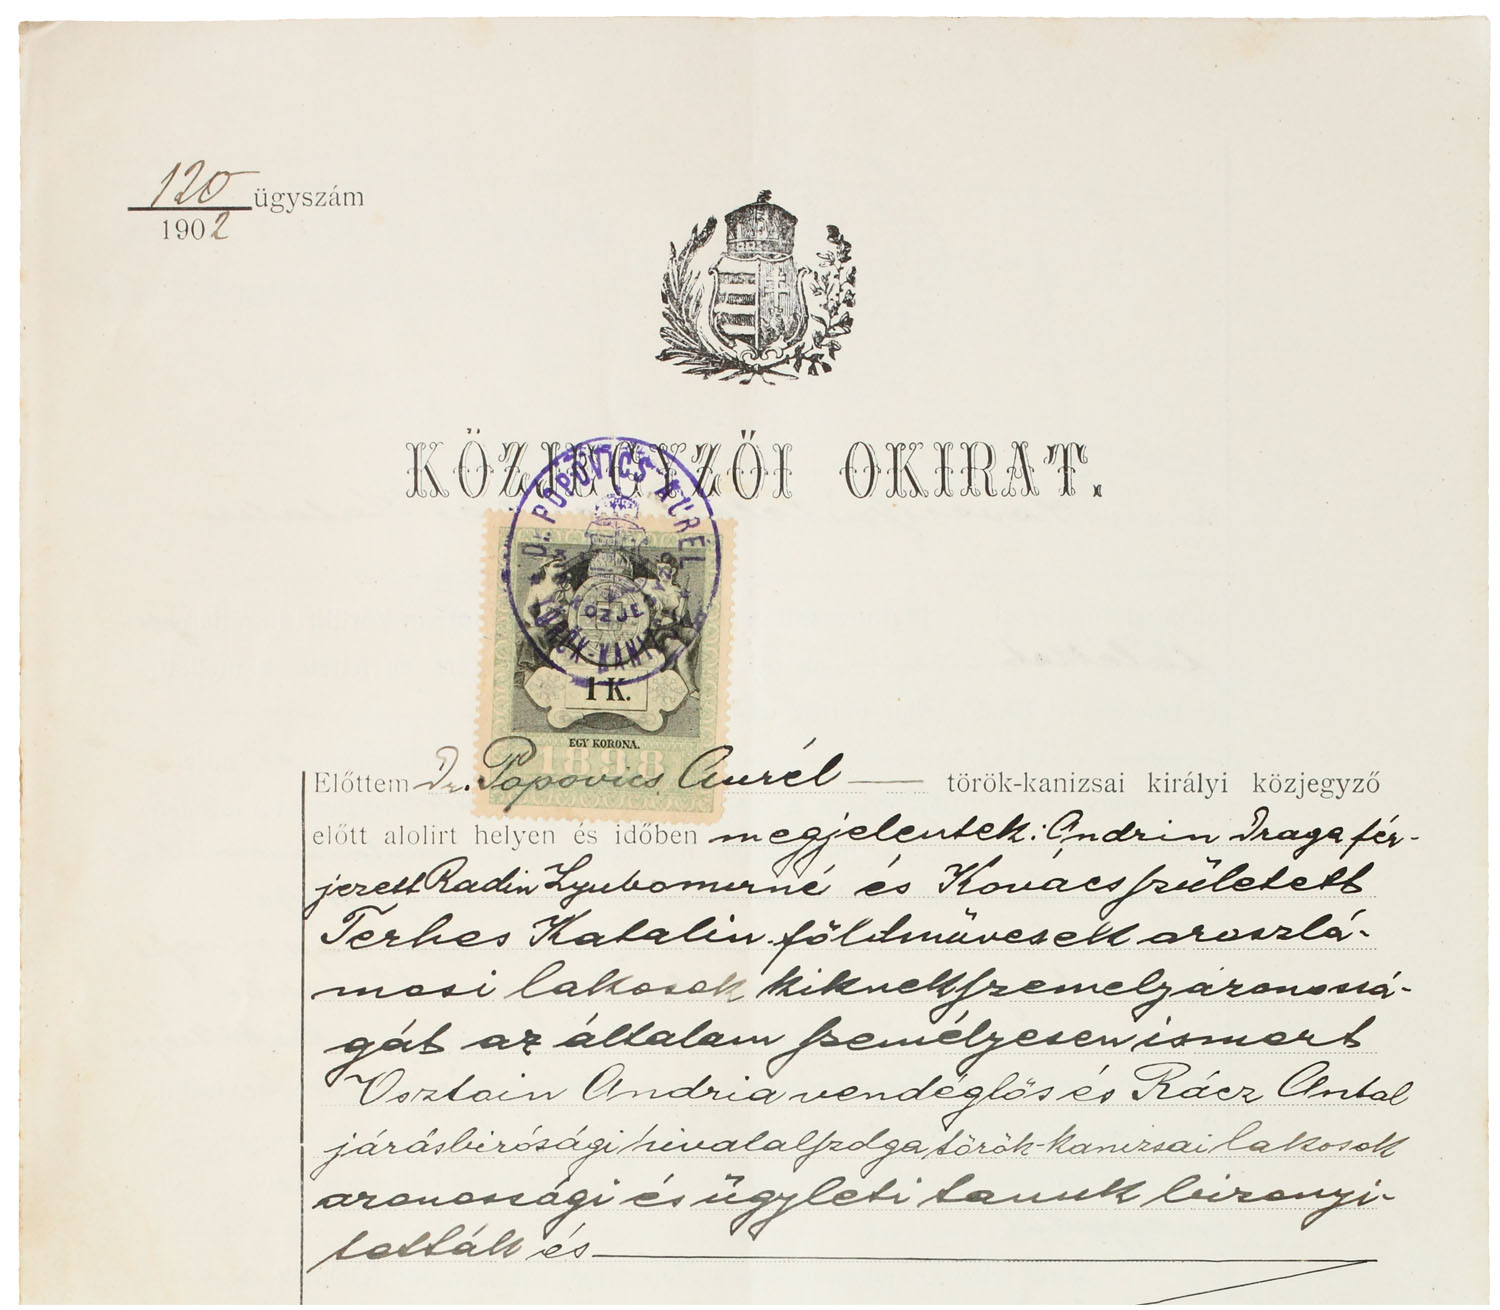 120 ügyszám
1902
KÖZJEGYZŐI OKIRAT.
Dr. POPOVICS AURÉL
KIR. KÖZJEGYZŐ
TÖRÖK-KANIZSA
1 K.
EGY KORONA.
1898
Előttem Dr. Popovics Aurél török-kanizsai királyi közjegyző
előtt alolirt helyen és időben megjelentek: Andrin Draga fér-
jezett Radin Lyubomirné és Kovács született
Terhes Katalin földművesek aroszlá-
mosi lakosok kiknek személyazonossá-
gát az általam személyesen ismert
Osztoin Andria vendéglős és Rácz Antal
járásbirósági hivatalszolga török-kanizsai lakosok
azonossági és ügyleti tanuk bizonyi-
tották és